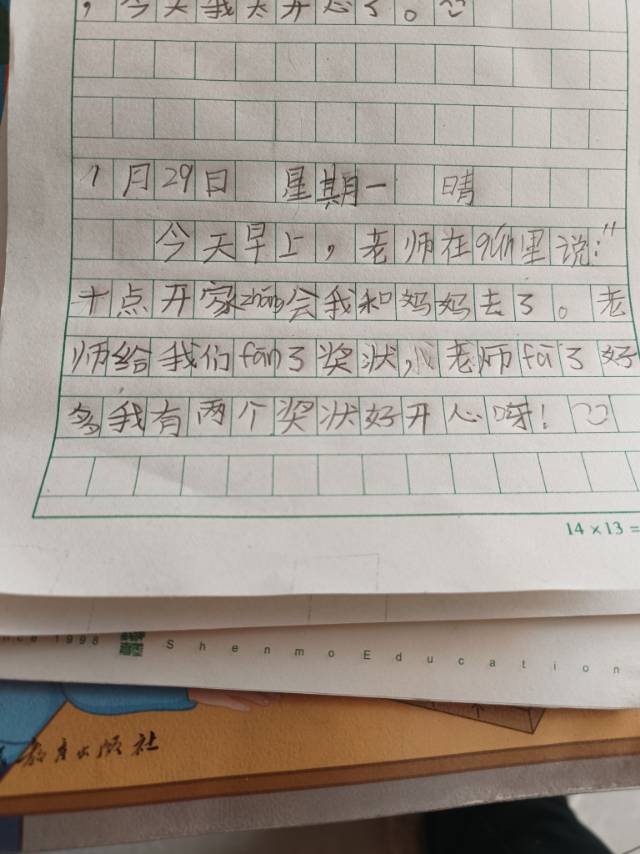 ，今天我太开心了。
1月29日 星期一 晴
今天早上，老师在qún里说："
十点开家zhǎng会我和妈妈去了。老
师给我们fān了奖状，老师fā了好
多我有两个奖状好开心呀！
14×13=
nce 1998 Shenmo Education
教育出版社